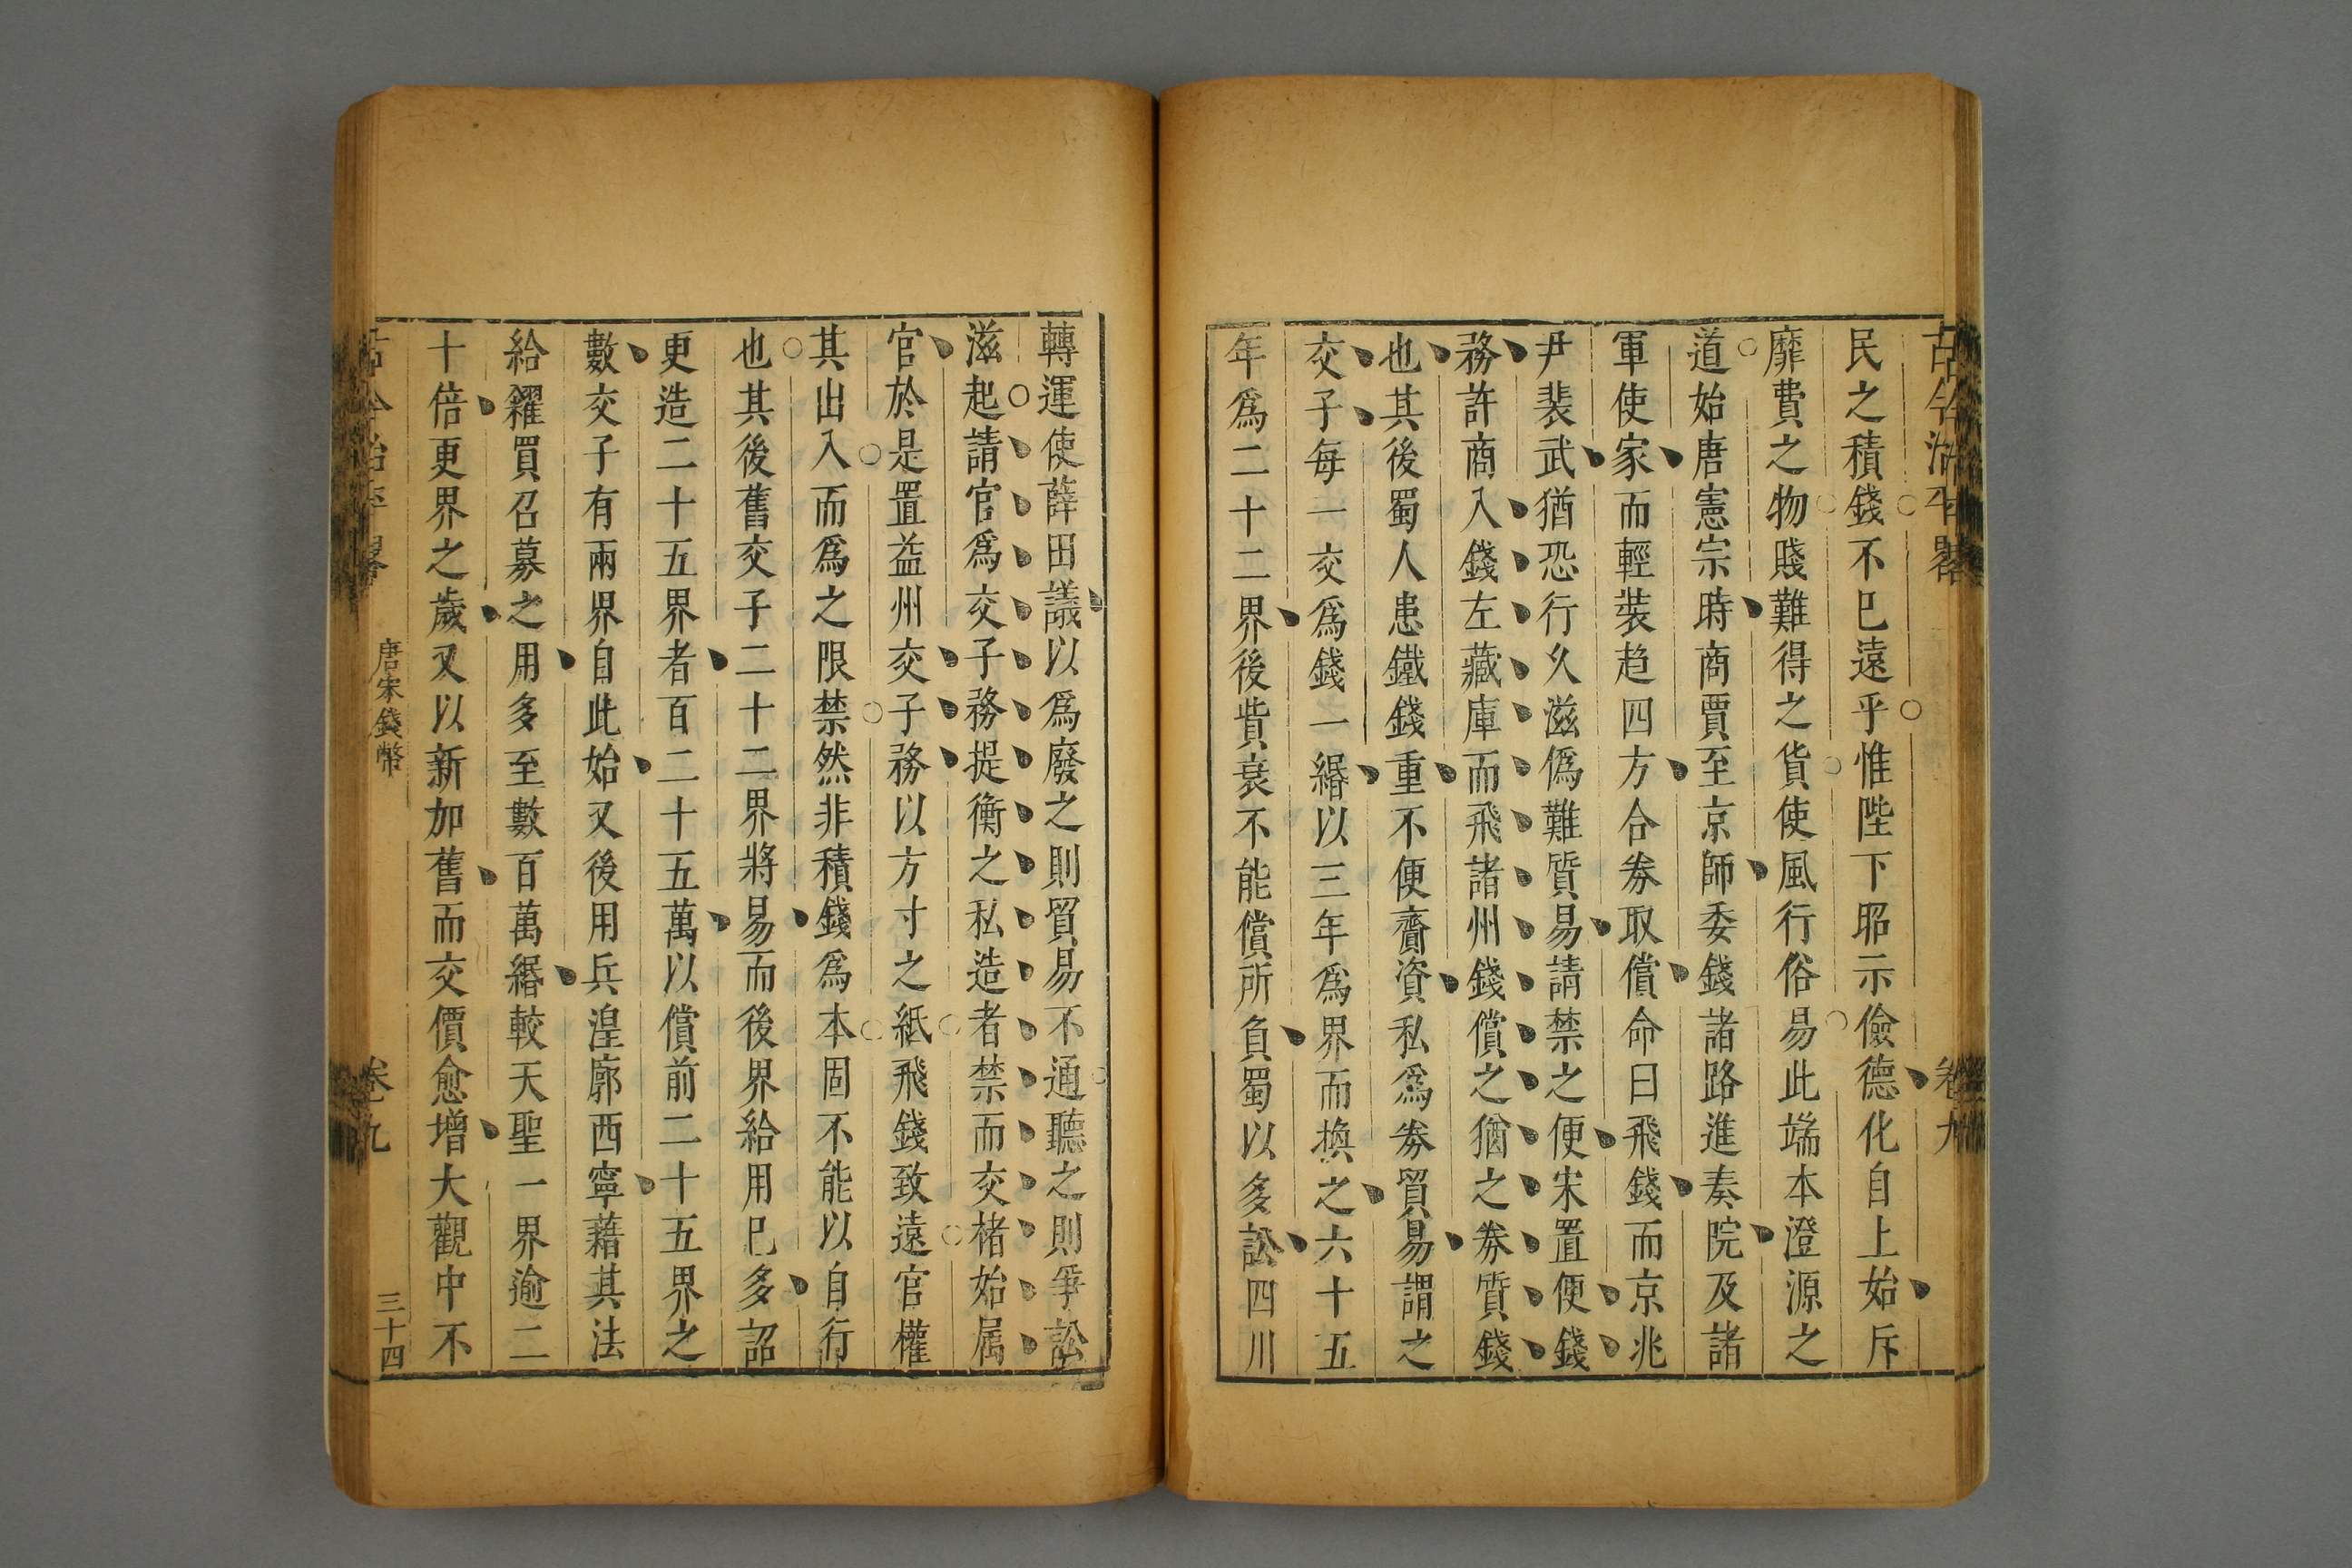 古今治平畧
卷九
民之積錢不巳遠乎惟陛下昭示儉德化自上始斥
靡費之物賤難得之貨使風行俗易此端本澄源之
道始唐憲宗時商賈至京師委錢諸路進奏院及諸
軍使家而輕裝趋四方合劵取償命曰飛錢而京兆
尹裴武猶恐行久滋僞難質易請禁之便宋置便錢
務許商入錢左藏庫而飛諸州錢償之猶之劵質錢
也其後蜀人患鐵錢重不便齎資私爲劵貿易謂之
交子每一交爲錢一緡以三年爲界而換之六十五
年爲二十二界後貲衰不能償所負蜀以多訟四川
轉運使薛田議以爲廢之則貿易不通聽之則爭訟
滋起請官爲交子務提衡之私造者禁而交楮始属
官於是置益州交子務以方寸之紙飛錢致遠官權
其出入而爲之限禁然非積錢爲本固不能以自行
也其後舊交子二十二界將易而後界給用巳多詔
更造二十五界者百二十五萬以償前二十五界之
數交子有兩界自此始又後用兵湟廓西寧藉其法
給糴買召募之用多至數百萬緡較天聖一界逾二
十倍更界之歲又以新加舊而交價愈增大觀中不
古今治平畧
唐宋錢幣
卷九
三十四